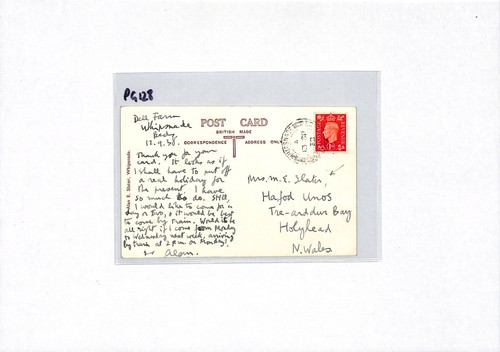 PG128
Dell Farm
Whipsnade
Beds
12.9.38.
POST CARD
BRITISH MADE
CORRESPONDENCE ADDRESS ONLY
Thank you for your
card. It looks as if
I shall have to put off
a real holiday for
the present. I have
so much to do. Still,
I would like to come for a
day or two, & it would be best
to come by train. Would it be
all right if I came from Monday
to Wednesday next week, arriving
by train at 2 p.m. on Monday?
Alan.
Mrs. M. E. Slater,
Hafod Unos
Tre-arddur Bay
Holyhead
N. Wales
Whipsnade.